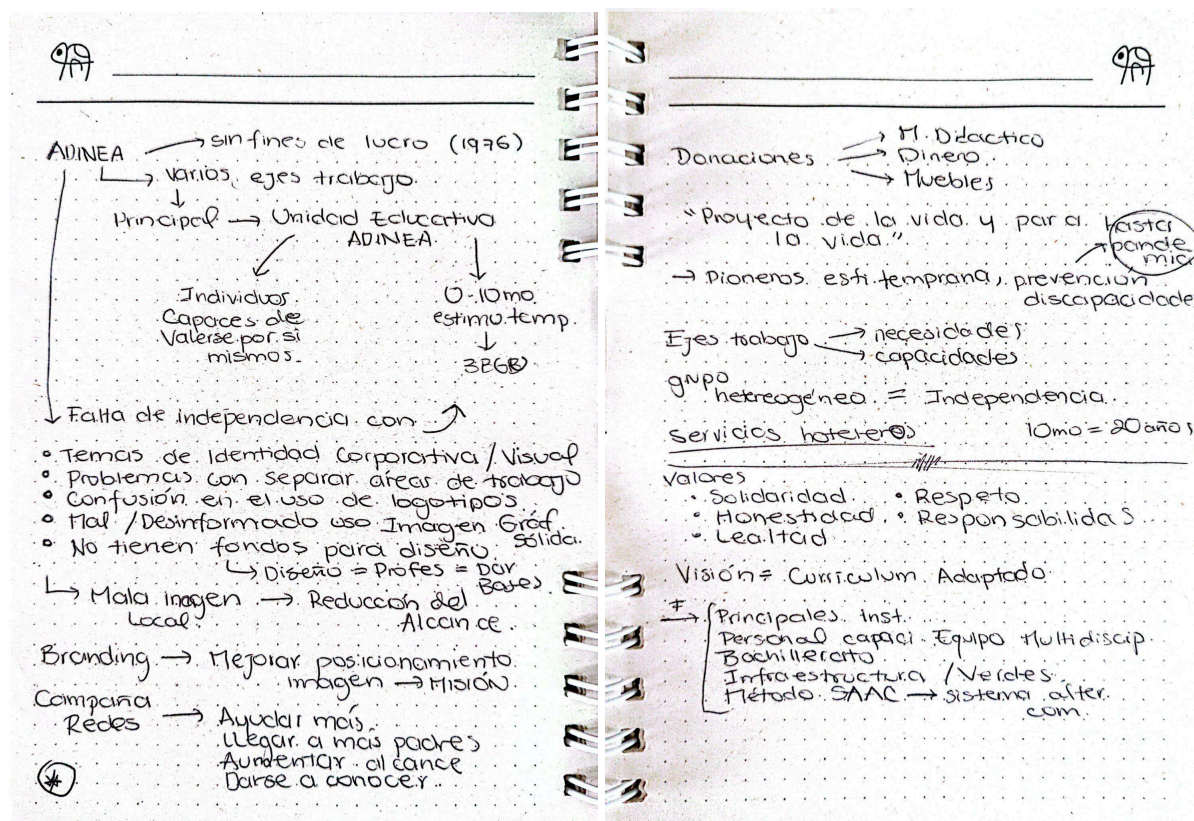 ADINEA → sin fines de lucro (1976)
→ varios ejes trabajo.
Principal → Unidad Educativa
ADINEA
Individuos
Capaces de
Valerse por si
mismos.
0-10mo
estimu.temp.
3EGB
Falta de independencia con
• Temas de Identidad Corporativa/Visual
• Problemas con separar áreas de trabajo
• Confusión en el uso de logotipos
• Mal / Desinformado uso Imagen Gráf.
Sólida.
• No tienen fondos para diseño.
→ Diseño = Profes = Dar
Bases
→ Mala imagen → Reducción del
Local. Alcance.
Branding → Mejorar posicionamiento
imagen → MISIÓN
Campaña
Redes → Ayudar más
Llegar a más padres
Aumentar alcance
Darse a conocer.
Donaciones → M. Didactico
→ Dinero
→ Muebles
"Proyecto de la vida y para
la vida"
hasta
pande
mia
→ Pioneros esti.temprana, prevención
discapacidade
Ejes trabajo → necesidades
→ capacidades
grupo
hetreogéneo = Independencia.
servicios hoteleros 10mo = 20 años
Valores
• Solidaridad • Respeto
• Honestidad • Responsabilidas
• Lealtad
Visión = Curriculum Adaptado
Principales inst.
Personal capaci. Equipo Multidiscip.
Bachillerato
Infraestructura / Verdes
Método SAAC → sistema alter.
com